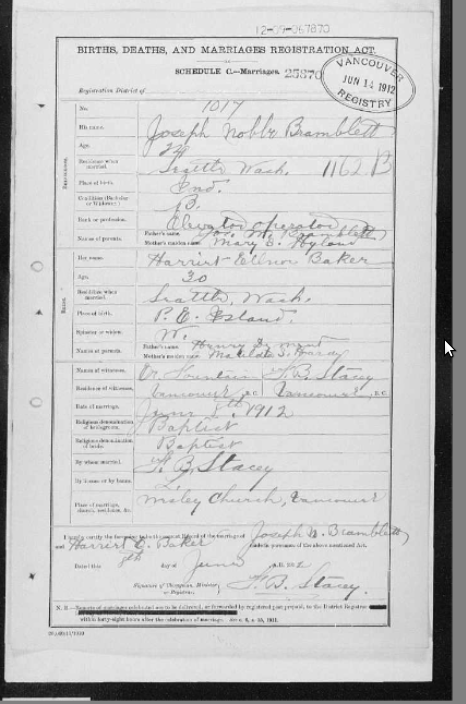 12-09-067870
BIRTHS, DEATHS, AND MARRIAGES REGISTRATION ACT.
SCHEDULE C.—Marriages. 25870
VANCOUVER
JUN 14 1912
REGISTRY
Registration District of
No. 1017
His name. Joseph Noble Bramblett
Age.
Residence when married. Seattle Wash. 1162 B
Place of birth. Ind.
Condition (Bachelor or Widower) B.
Rank or profession. Elevator operator
Names of parents. Father's name Bramblett
Mother's maiden name Mary E. Hyland
Her name. Harriet Ellnor Baker
Age. 30
Residence when married. Seattle, Wash.
Place of birth. P. E. Island.
Spinster or widow. W.
Names of parents. Father's name Henry
Mother's maiden name Matilda S. Hardy
Names of witnesses. F. B. Stacey
Residence of witnesses. Vancouver, B.C. Vancouver, B.C.
Date of marriage. June 8th. 1912
Religious denomination of bridegroom. Baptist
Religious denomination of bride. Baptist
By whom married. F. B. Stacey
By license or by banns. L.
Place of marriage, church, residence, &c. Church, Vancouver
I hereby certify the foregoing to be the correct Record of the marriage of Joseph N. Bramblett
and Harriet E. Baker under the provisions of the above mentioned Act.
Dated this 8th day of June A.D. 191
Signature of Clergyman, Minister or Registrar, F. B. Stacey.
N. B.—Reports of marriages celebrated are to be delivered, or forwarded by registered post prepaid, to the District Registrar
within forty-eight hours after the celebration of marriage.